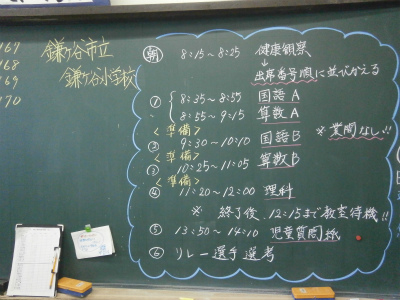 169
168
169
170
鎌ケ谷市立
鎌ケ谷小学校
朝 8:15~8:25 健康観察
↓
出席番号順に並びかえる
① { 8:35~8:55 国語A
8:55~9:15 算数A
<準備>
② 9:30~10:10 国語B ※業間なし!!
<準備>
③ 10:25~11:05 算数B
<準備>
④ 11:20~12:00 理科
※ 終了後、12:15まで教室待機!!
⑤ 13:50~14:10 児童質問紙
⑥ リレー選手選考